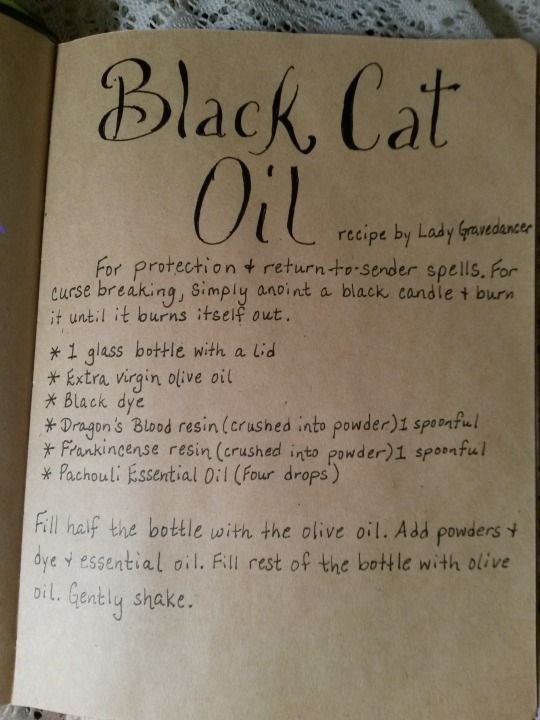 Black Cat
Oil
recipe by Lady Gravedancer
For protection & return-to-sender spells. For
curse breaking, simply anoint a black candle & burn
it until it burns itself out.
* 1 glass bottle with a lid
* Extra virgin olive oil
* Black dye
* Dragon's Blood resin (crushed into powder) 1 spoonful
* Frankincense resin (crushed into powder) 1 spoonful
* Pachouli Essential Oil (Four drops)
Fill half the bottle with the olive oil. Add powders &
dye & essential oil. Fill rest of the bottle with olive
oil. Gently shake.